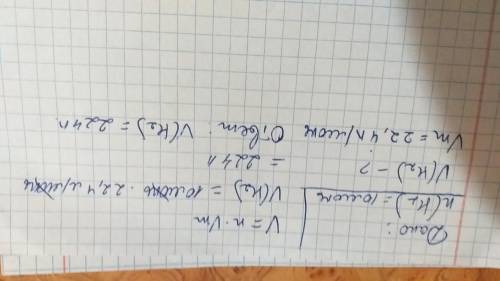 Дано:
n(H₂) = 10 моль
V(H₂) - ?
Vm = 22,4 л/моль
V = n · Vm
V(H₂) = 10 моль · 22,4 л/моль
= 224 л
Ответ: V(H₂) = 224 л